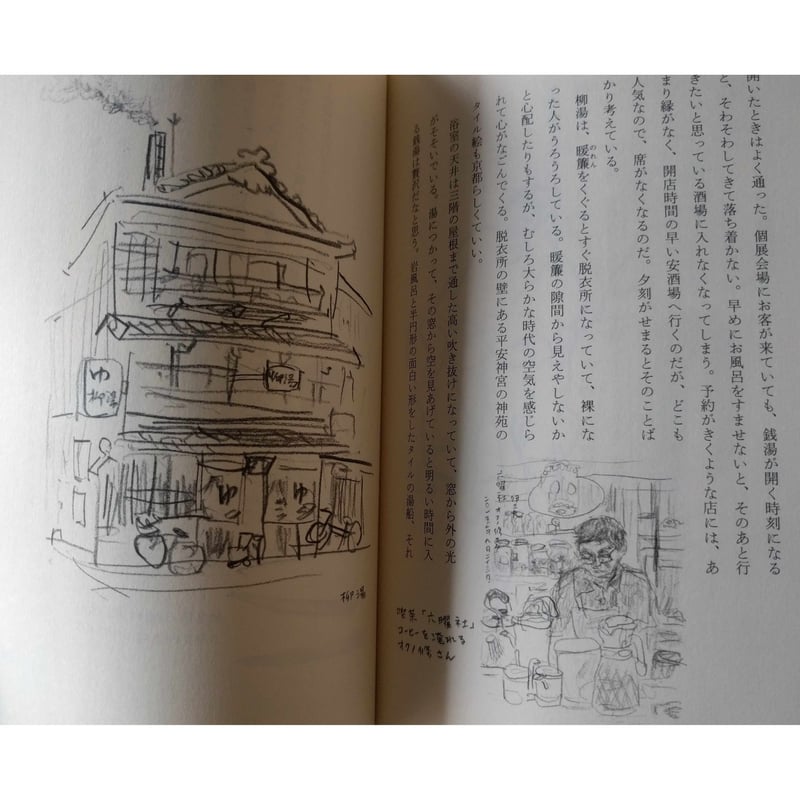 開いたときはよく通った。個展会場にお客が来ていても、銭湯が開く時刻になる
と、そわそわしてきて落ち着かない。早めにお風呂をすませないと、そのあと行
きたいと思っている酒場に入れなくなってしまう。予約がきくような店には、あ
まり縁がなく、開店時間の早い安酒場へ行くのだが、どこも
人気なので、席がなくなるのだ。夕刻がせまるとそのことば
かり考えている。
柳湯は、暖簾をくぐるとすぐ脱衣所になっていて、裸にな
のれん
った人がうろうろしている。暖簾の隙間から見えやしないか
と心配したりもするが、むしろ大らかな時代の空気を感じら
れて心がなごんでくる。脱衣所の壁にある平安神宮の神苑の
タイル絵も京都らしくていい。
浴室の天井は三階の屋根まで通した高い吹き抜けになっていて、窓から外の光
がそそいでいる。湯につかって、その窓から空を見あげていると明るい時間に入
る銭湯は贅沢だなと思う。岩風呂と半円形の面白い形をしたタイルの湯船、それ
六曜社
喫茶「六曜社」
コーヒーを淹れる
オクノ修さん
ゆ
柳湯
柳湯
ゆ
ゆ
柳湯